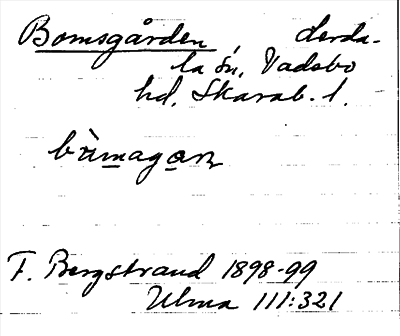 Bomsgården, Lerda-
la sn, Vadsbo
hd, Skarab. l.
bùmagaɳ
F. Bergstrand 1898-99
Ulma 111:321